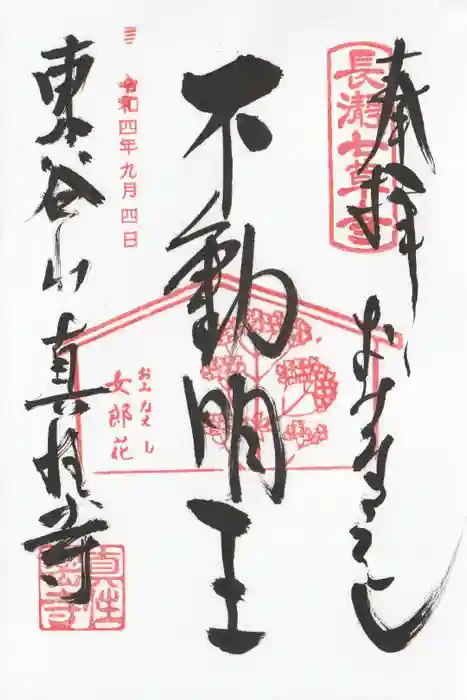 長瀞七草寺
奉拝 おみなえし
不動明王
令和四年九月四日
おみなえし
女郎花
東谷山 真性寺